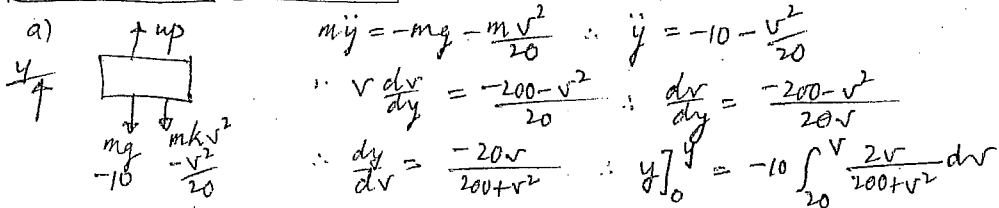 a)
↑ up
y
↑
mg mkv²
-10 -v²/20
mÿ = -mg - mv²/20 ∴ ÿ = -10 - v²/20
∴ v dv/dy = (-200-v²)/20 ∴ dv/dy = (-200-v²)/20v
∴ dy/dv = -20v/(200+v²) ∴ y]₀^y = -10 ∫₂₀^V 2v/(200+v²) dv